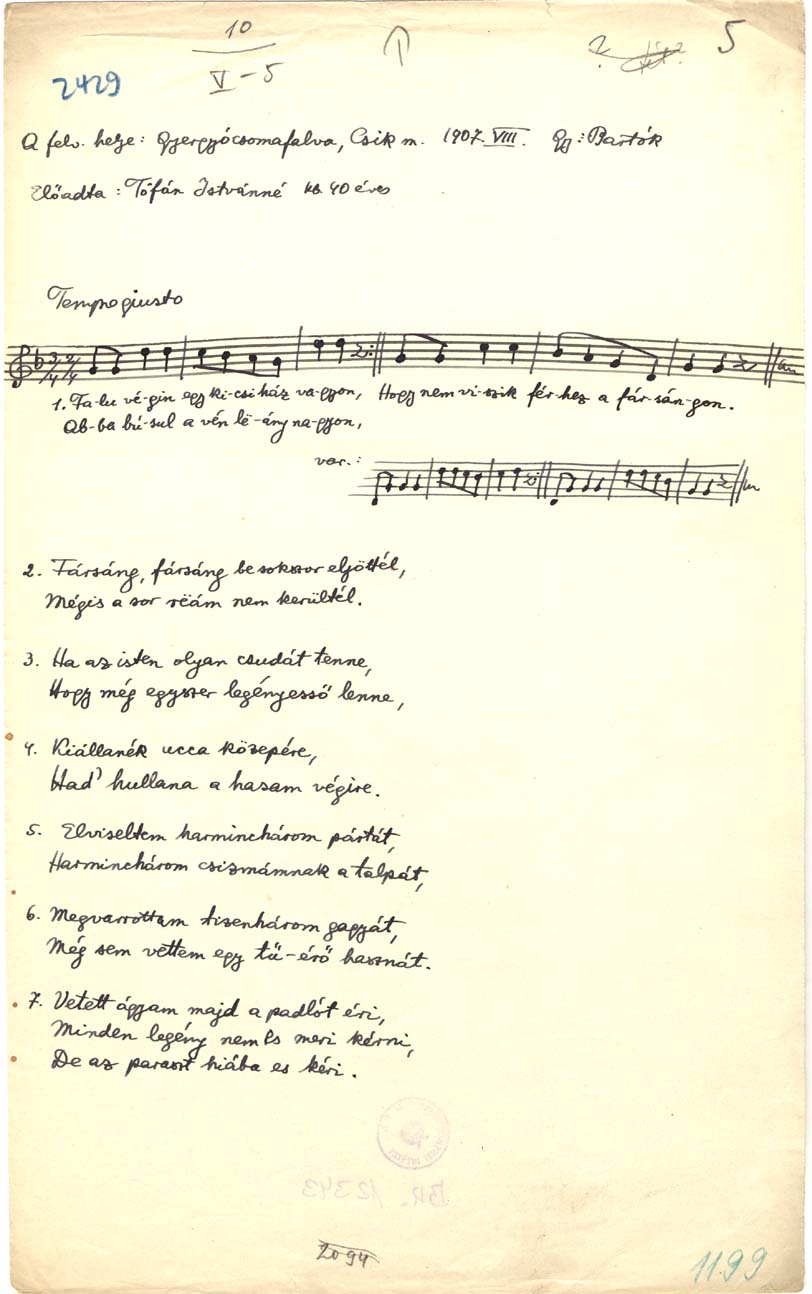 10
V-5
5
2429
A felv. helye: Gyergyócsomafalva, Csik m. 1907. VIII. Gy: Bartók
Előadta: Tófán Istvánné kb. 40 éves
Tempo giusto
3/4 2/4
1. Fa-lu vé-gin egy ki-csi ház va-gyon, Hogy nem vi-szik fér-hez a fár-sán-gon.
Ab-ba bú-sul a vén lë-ány na-gyon,
var.:
2. Fársáng, fársáng be sokszor eljöttél,
Mégis a sor rëám nem kerültél.
3. Ha az isten olyan csudát tenne,
Hogy még egyszer legényesső lenne,
4. Kiállanék ucca közepére,
Had' hullana a hasam végire.
5. Elviseltem harminchárom pártát,
Harminchárom csizmámnak a talpát,
6. Megvarrottam tizenhárom gagyát,
Még sem vettem egy tű-érő hasznát.
7. Vetett ágyam majd a padlót éri,
Minden legény nem és meri kérni,
De az paraszt hiába es kéri.
BR. 12343
2094
1199